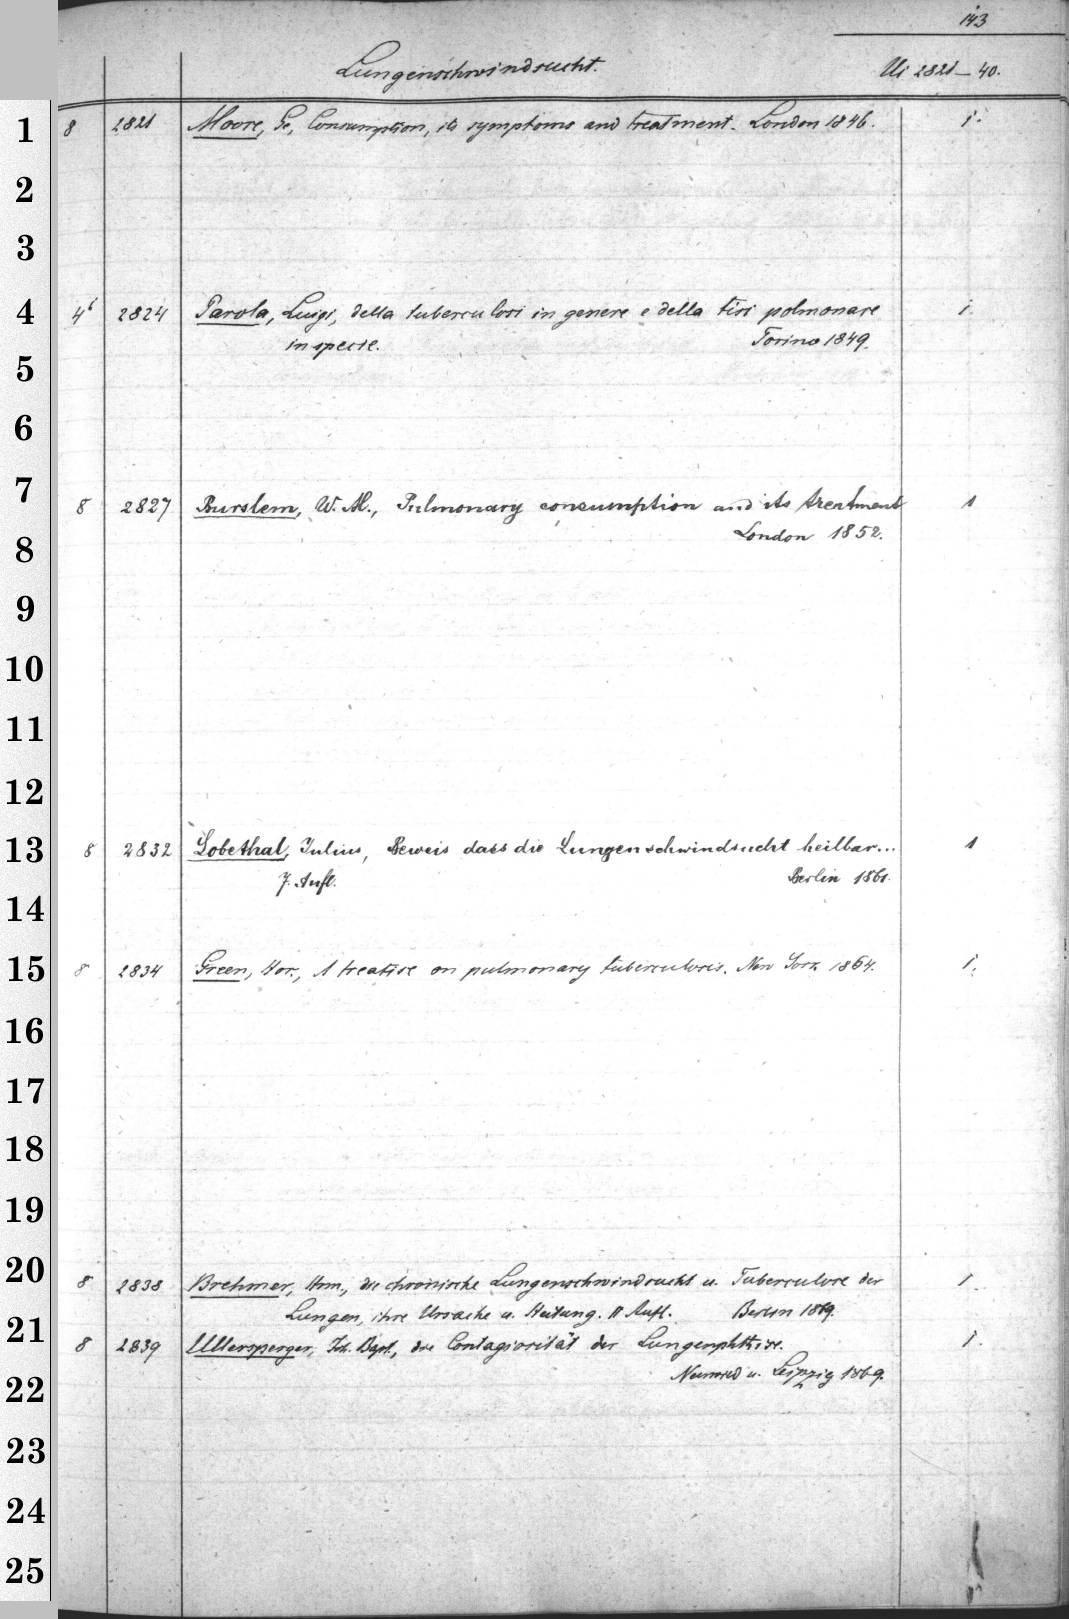 143
Lungenschwindsucht. Ui 2821-40.
1 8 2821 Moore, Ge, Consumption, its symptoms and treatment. London 1846. 1.
2
3
4 4° 2824 Parola, Luigi, della tuberculosi in genere e della tisi polmonare 1.
in specie. Torino 1849.
5
6
7 8 2827 Burslem, W. M., Pulmonary consumption and its treatment 1
London 1852.
8
9
10
11
12
13 8 2832 Lobethal, Julius, Beweis dass die Lungenschwindsucht heilbar... 1
7. Aufl. Berlin 1861.
14
15 8 2834 Green, Hor., A treatise on pulmonary tuberculosis. New York 1864. 1.
16
17
18
19
20 8 2838 Brehmer, Hrm., die chronische Lungenschwindsucht u. Tuberculose der 1
Lungen, ihre Ursache u. Heilung. II Aufl. Berlin 1869.
21 8 2839 Ullersperger, Joh. Bapt., die Contagiosität der Lungenphthise. 1.
Neuwied u. Leipzig 1869.
22
23
24
25